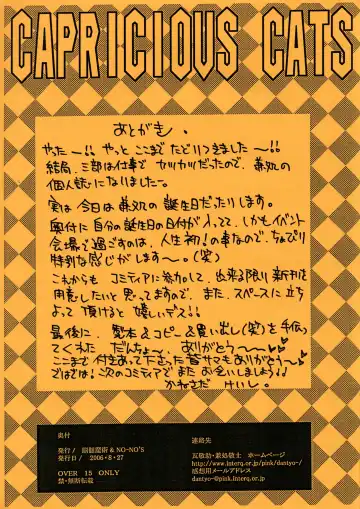 CAPRICIOUS CATS
あとがき、
やたー!! やっと ここまで たどりつきました〜!!
結局、三部は仕事で セツカツだったので、兼処の
個人誌になりましたー。
実は今日は兼処の誕生日だったりします。
奥付に自分の誕生日の日付が入ってて、しかもイベント
会場で過ごすのは、人生初!の事なので、ちょぴり
特別な感じがします〜。(笑)
これからも コミティアに参加して、出来る限り新刊を
用意したいと思ってますので、また、スペースに立ち
よって 頂けると 嬉しいデス!!
最後に、製本&コピー&買い出し(笑)を手伝っ
てくれた だんちょー、ありがとう〜
ここまで付きあって下さった皆サマもありがとう〜
ではでは!次のコミティアで またお会いしましょう!!
かねさだ けいし。
奥付
発行/ 銀髄魔術 & NO-NO'S
発行日/ 2006・8・27
OVER 15 ONLY
禁・無断転載
連絡先
亙敬助・兼処敬士 ホームページ
http://www.interq.or.jp/pink/dantyo-/
感想用メールアドレス
dantyo-@pink.interq.or.jp